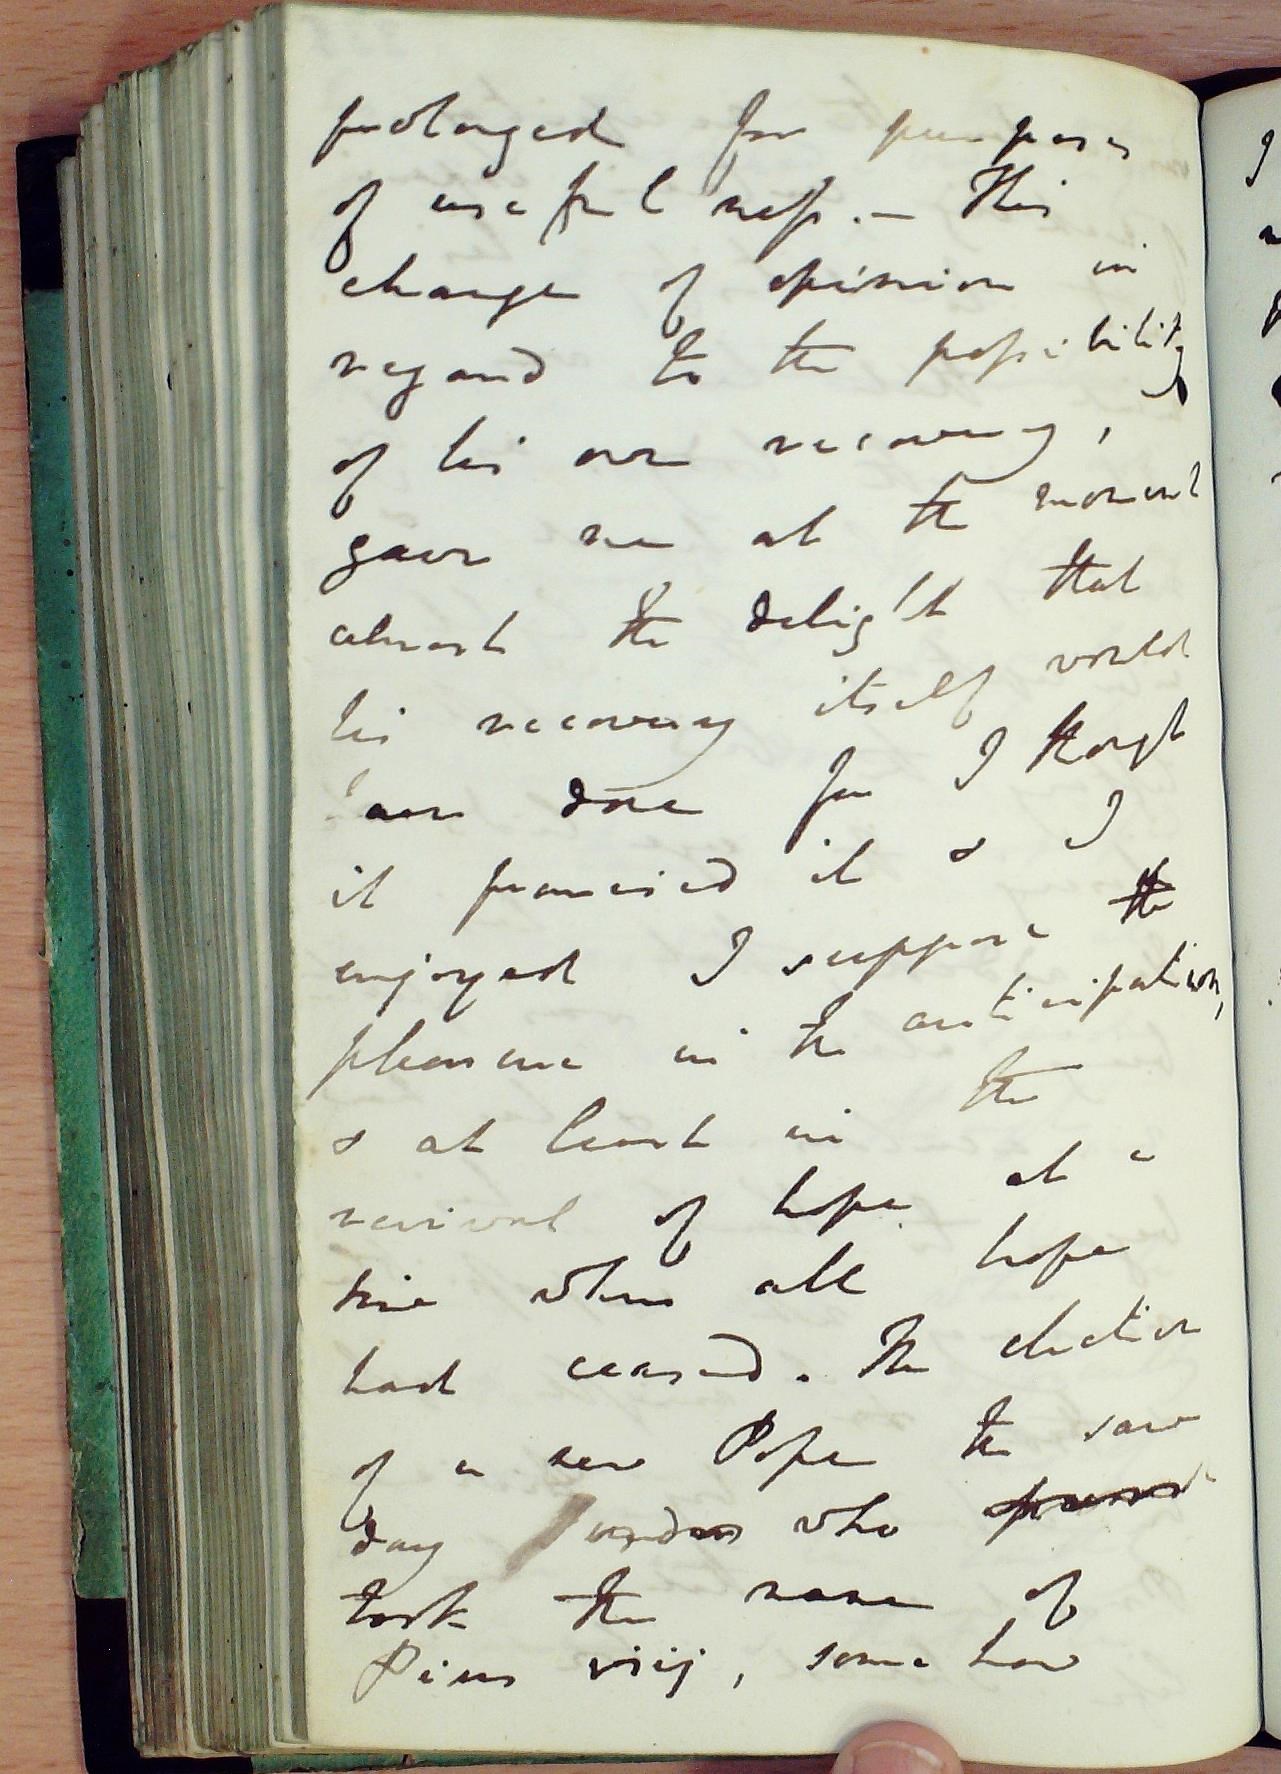 prolonged for purposes
of usefulness. — This
change of opinion in
regard to the possibility
of his own recovery,
gave me at the moment
almost the delight that
his recovery itself would
have done for I though
it promised it & I
enjoyed I suppose the
pleasure in the anticipation,
& at least in the
revival of hope at a
time when all hope
had ceased. The election
of a new Pope the same
day who
took the name of
Pius viij, some how